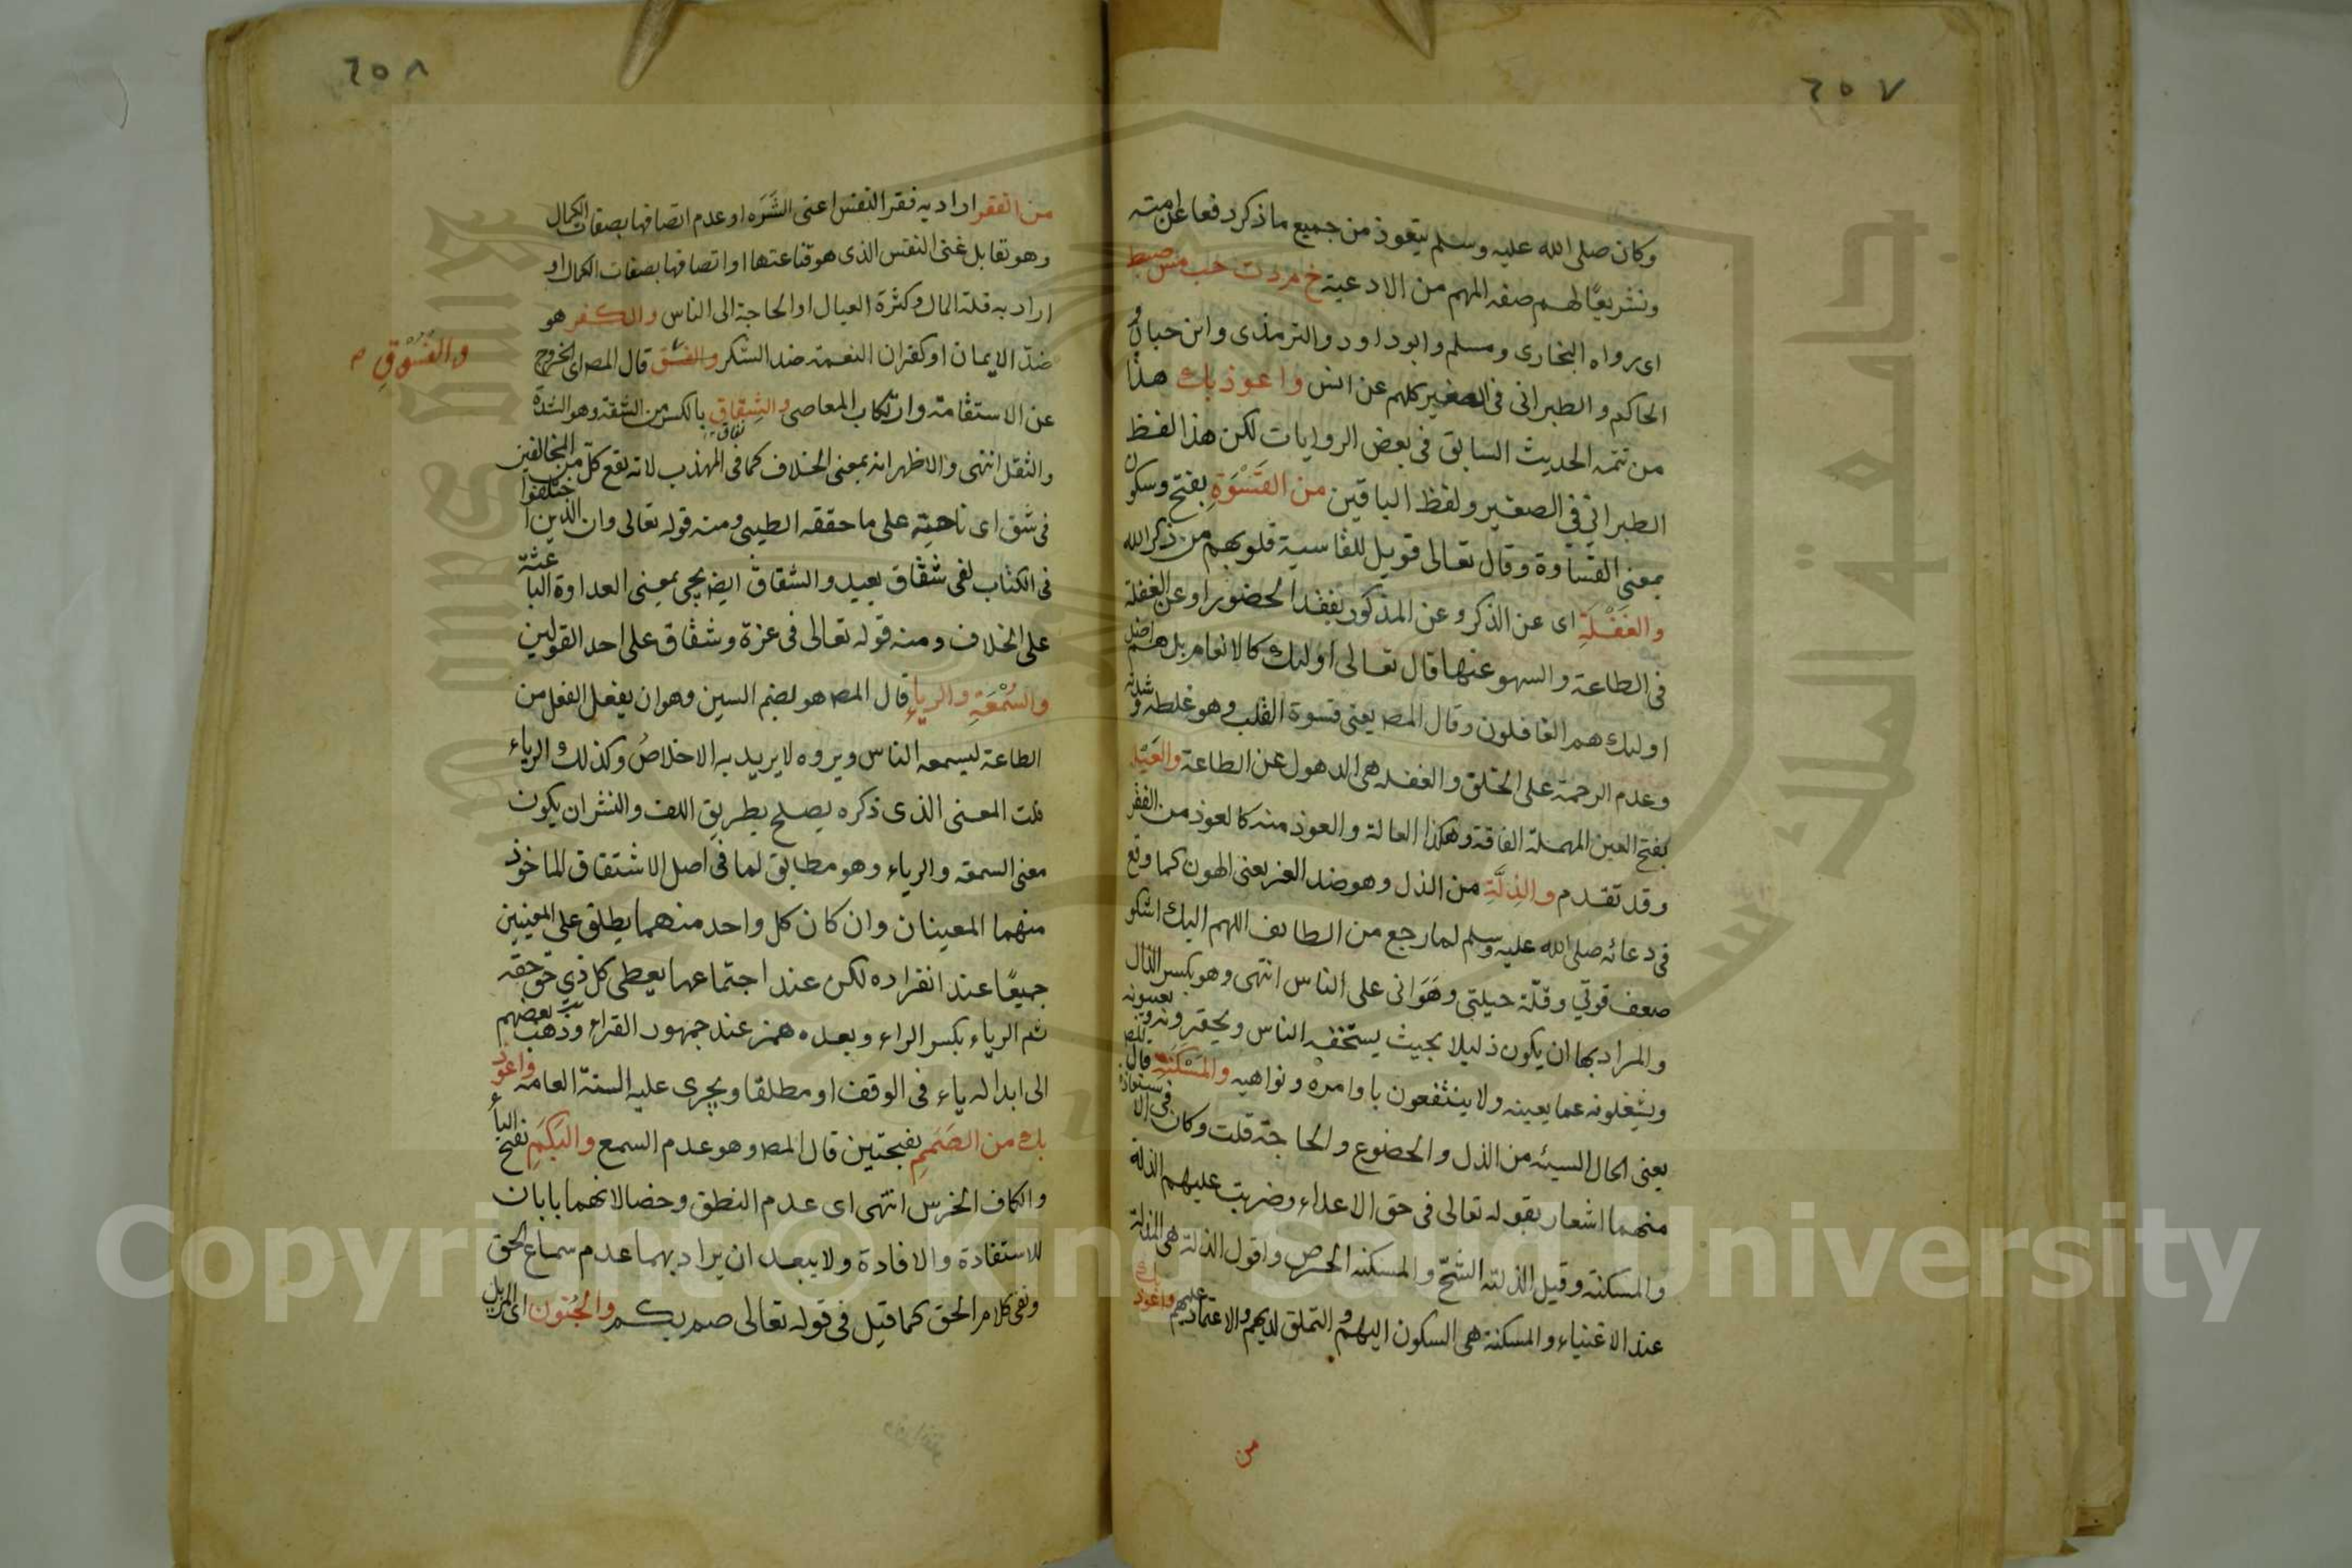 ٦٥٧
وكان صلى الله عليه وسلم يتعوذ من جميع ما ذكر دفعا عن امته
وتشريعًا لهم صفه المهم من الادعية خ م د ت حب مس صط
اى رواه البخارى ومسلم وابو داود والترمذى وابن حبان و
الحاكم والطبرانى فى الصغير كلهم عن انس واعوذ بك هذا
من تتمه الحديث السابق فى بعض الروايات لكن هذا لفظ
الطبرانى فى الصغير ولفظ الباقين من القَسْوَةِ بفتح وسكون
بمعنى القساوة وقال تعالى فويل للقاسية قلوبهم من ذكر الله
والغَفْلَةِ اى عن الذكر وعن المذكور بفقد الحضور او عن الغفلة
فى الطاعة والسهو عنها قال تعالى اولئك كالانعام بل هم اضل
اولئك هم الغافلون وقال المص يعنى قسوة القلب وهو غلظه وشدته
وعدم الرحمة على الخلق والغفله هى الدهول عن الطاعة والعَيْلة
بفتح العين المهملة الفاقة وهكذا العالة والعوذ منه كالعوذ من الفقر
وقد تقدم والذِلَّةِ من الذل وهو ضد العز يعنى الهون كما وقع
فى دعائه صلى الله عليه وسلم لما رجع من الطائف اللهم اليك اشكو
ضعف قوتي وقلّة حيلتى وهَوَانى على الناس انتهى وهو بكسر الذال
والمراد بها ان يكون ذليلا بحيث يستخفه الناس ويحقرونه ويعيبونه
ويشغلونه عما يعينه ولا ينتفعون باوامره ونواهيه والمَسْكَنَةِ قال المص
يعنى الحال السيئه من الذل والخضوع والحاجة قلت وكان فى الاستعاذة
منهما اشعار بقوله تعالى فى حق الاعداء وضربت عليهم الذلة
والمسكنة وقيل الذلته الشحّ والمسكنه الحرص واقول الذلته هى المذلة
عند الاغنياء والمسكنة هى السكون اليهم والتملق لديهم والاعتماد عليهم واعوذ بك
من
٦٥٨
من الفقر اراد به فقر النفس اعنى الشَرَه او عدم اتصافها بصفات الكمال
وهو تقابل غنى النفس الذى هو قناعتها او اتصافها بصفات الكمال او
اراد به قلة المال وكثرة العيال او الحاجة الى الناس والكفر هو
ضدّ الايمان او كفران النعمة ضد الشكر والفسق قال المص اى الخروج
والفُسُوْقِ
عن الاستقامة وارتكاب المعاصى والشِقاق بالكسر من الشقة وهو الشدة
والثقل انتهى والاظهر انه بمعنى الخلاف كما فى المهذب لانه يقع كل من المخالفين
فى شق اى ناحيته على ما حققه الطيبى ومنه قوله تعالى وان الذين اختلفوا
فى الكتاب لفى شقاق بعيد والشقاق ايضا يجى بمعنى العداوة الباعثة
على الخلاف ومنه قوله تعالى فى عزة وشقاق على احد القولين
والسُمْعَةِ والرياءِ قال المص هو بضم السين وهو ان يفعل الفعل من
الطاعة ليسمعه الناس ويروه لا يريد به الاخلاص وكذلك الرياء
قلت المعنى الذى ذكره يصلح بطريق اللف والنشر ان يكون
معنى السمعه والرياء وهو مطابق لما فى اصل الاشتقاق الماخوذ
منهما المعينان وان كان كل واحد منهما يطلق على المعنيين
جميعًا عند انفراده لكن عند اجتماعهما يعطى كل ذى حق حقه
ثم الرياء بكسر الراء وبعده همز عند جمهور القراء وذهب بعضهم
الى ابداله ياء فى الوقف او مطلقا ويجرى عليه السنة العامه واعوذ
بك من الصَمَمِ بفتحتين قال المص وهو عدم السمع والبَكَمِ بفتح الباء
والكاف الخرس انتهى اى عدم النطق وخصا لانهما بابان
للاستفادة والافادة ولا يبعد ان يراد بهما عدم سماع الحق
ونفى كلام الحق كما قيل فى قوله تعالى صم بكم والجُنون اى المزيل
Copyright © King Saud University